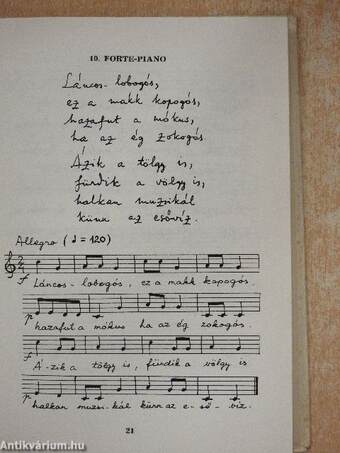 10. FORTE-PIANO
Láncos-lobogós,
ez a makk kopogós,
hazafut a mókus,
ha az ég zokogós.
Ázik a tölgy is,
fürdik a völgy is,
halkan muzsikál
künn az esővíz.
Allegro (♩ = 120)
2/4
f
Láncos-lobogós, ez a makk kopogós.
p
hazafut a mókus ha az ég zokogós.
f
Á-zik a tölgy is, fürdik a völgy is
p
halkan muzsi-kál künn az e-ső-víz.
21
Antikvárium.hu
antikvarium.hu